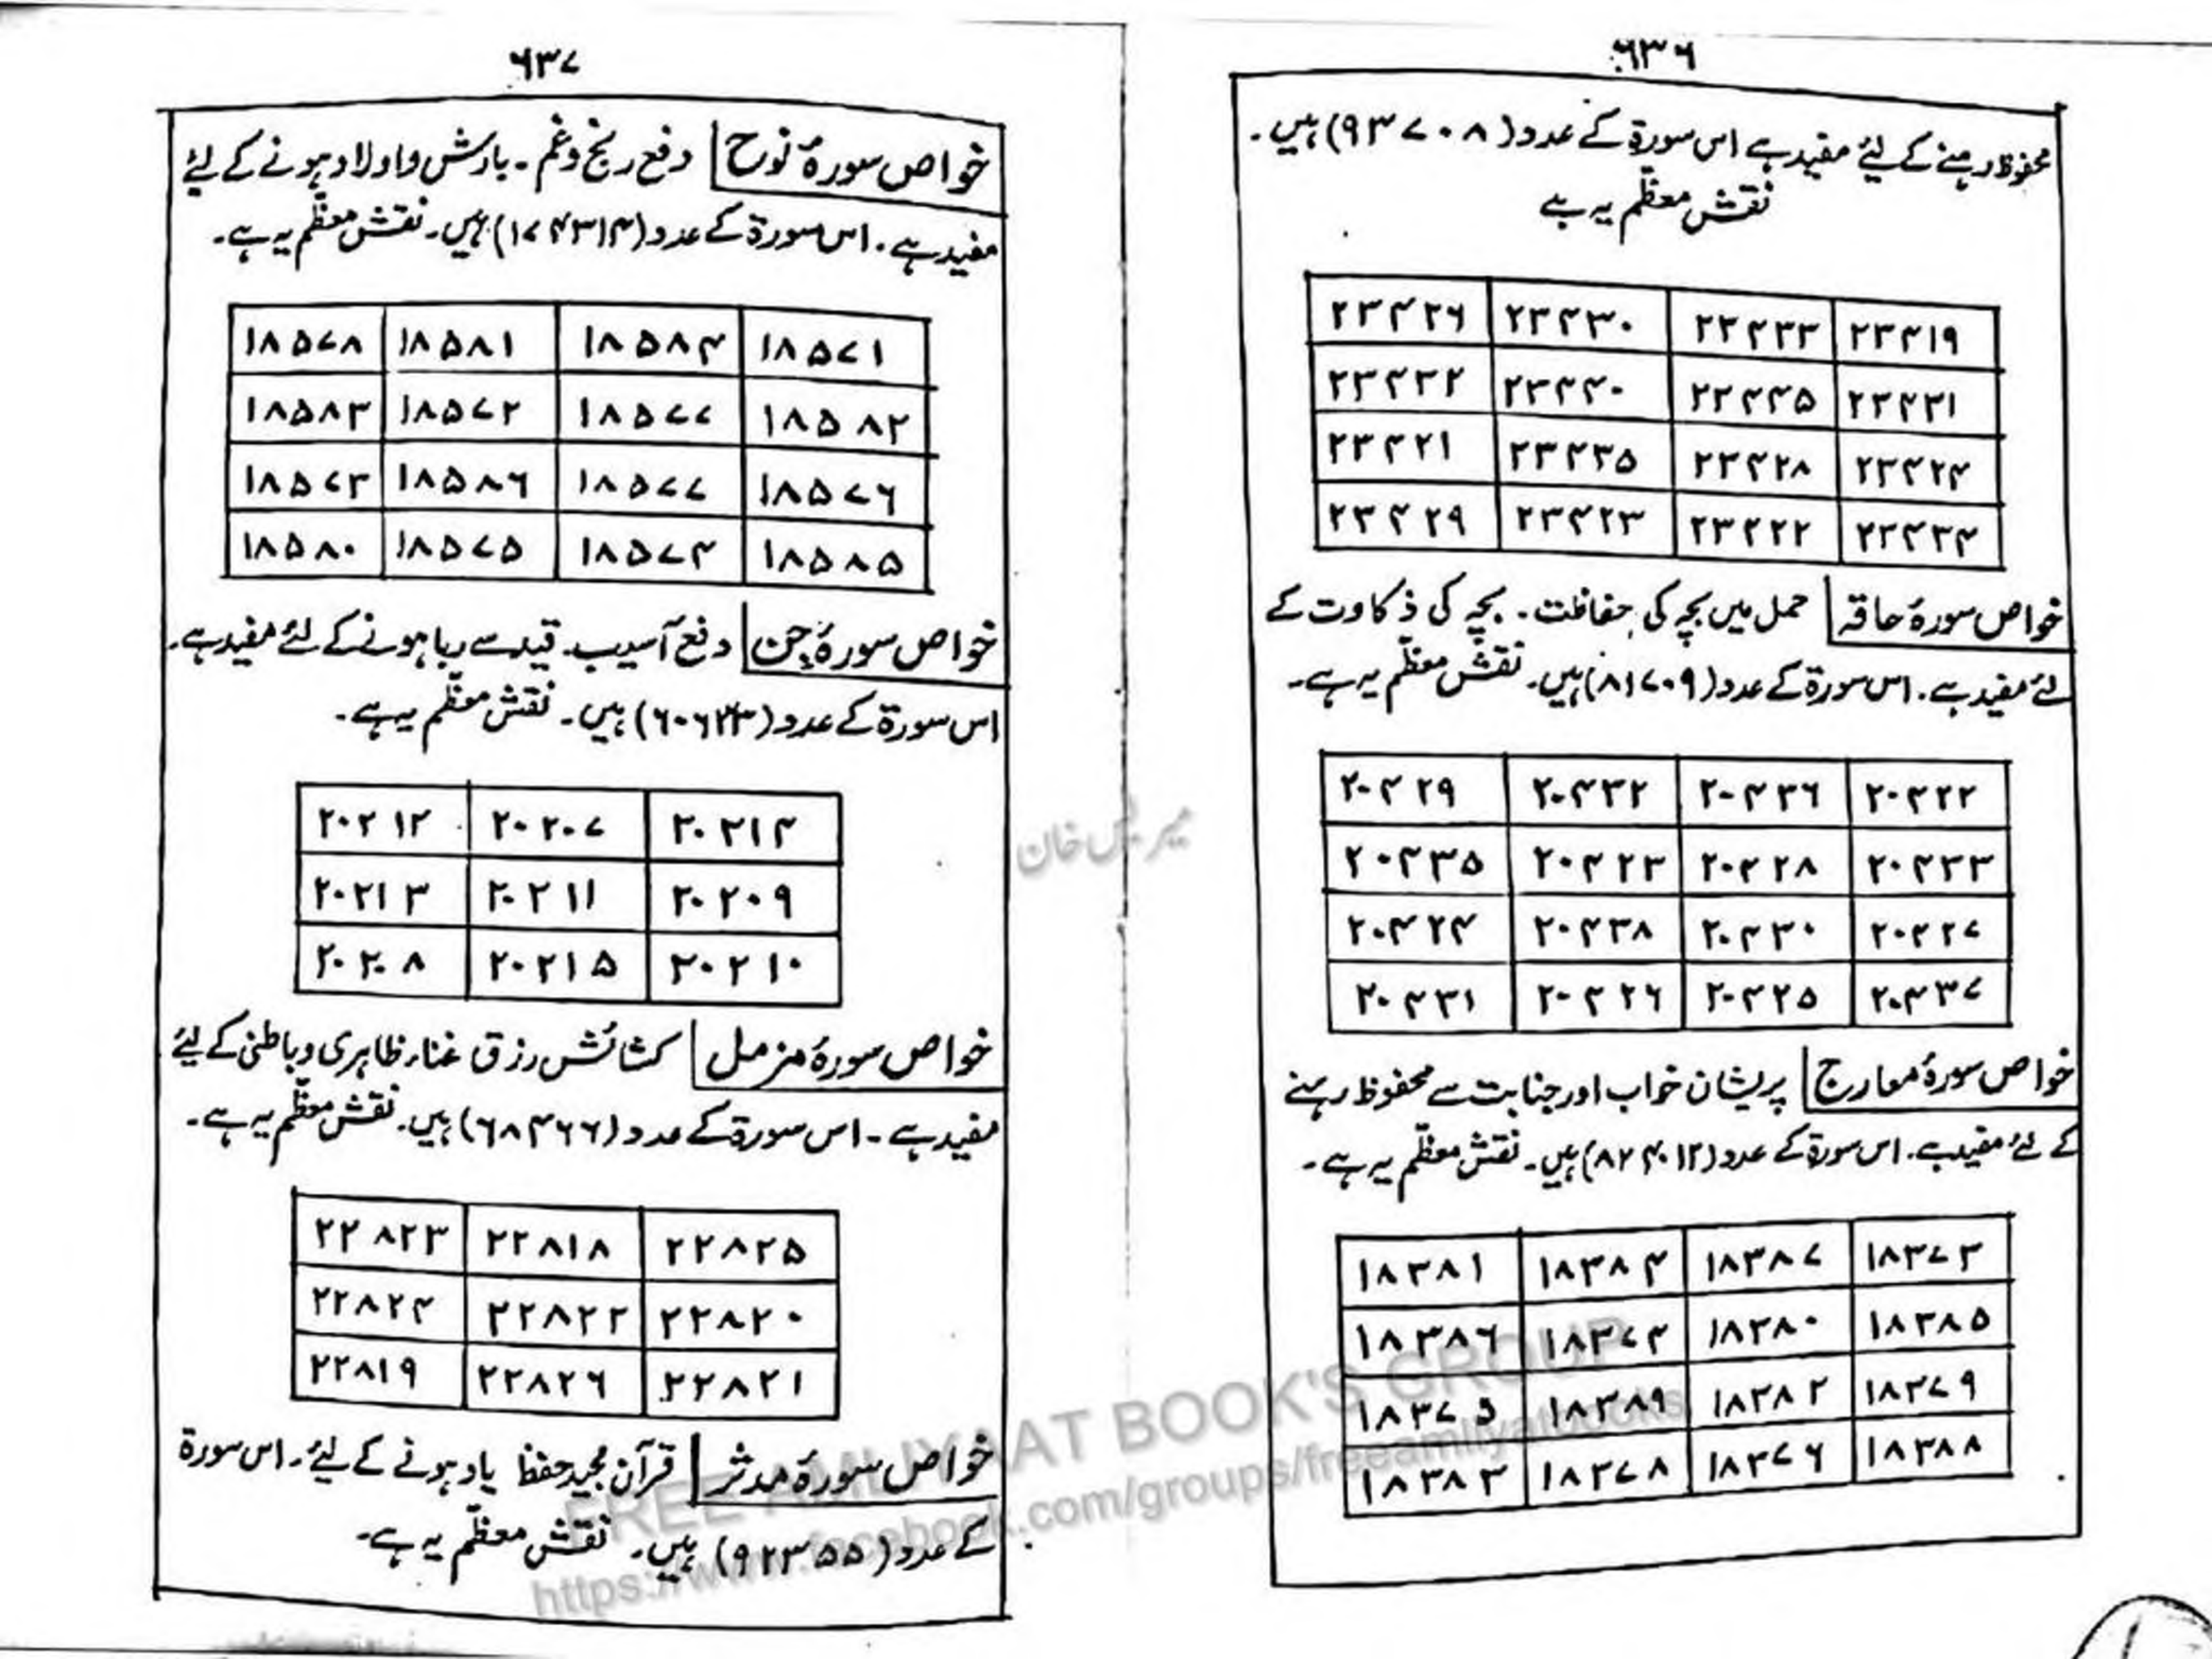 ۶۳۶
محفوظ رہنے کے لئے مفید ہے اس سورۃ کے عدد (۹۳۷۰۸) ہیں۔
نقش معظّم یہ ہے
۲۳۴۲۶ ۲۳۴۳۰ ۲۳۴۳۳ ۲۳۴۱۹
۲۳۴۳۲ ۲۳۴۲۰ ۲۳۴۲۵ ۲۳۴۳۱
۲۳۴۲۱ ۲۳۴۳۵ ۲۳۴۲۸ ۲۳۴۲۴
۲۳۴۲۹ ۲۳۴۲۳ ۲۳۴۲۲ ۲۳۴۳۴
خواص سورۂ حاقہ حمل میں بچہ کی حفاظت۔ بچہ کی ذکاوت کے
لئے مفید ہے۔ اس سورۃ کے عدد (۸۱۷۰۹) ہیں۔ نقش معظّم یہ ہے۔
۲۰۴۲۹ ۲۰۴۳۲ ۲۰۴۳۶ ۲۰۴۲۲
۲۰۴۳۵ ۲۰۴۲۳ ۲۰۴۲۸ ۲۰۴۳۳
۲۰۴۲۴ ۲۰۴۳۸ ۲۰۴۳۰ ۲۰۴۲۷
۲۰۴۳۱ ۲۰۴۲۶ ۲۰۴۲۵ ۲۰۴۳۷
خواص سورۂ معارج پریشان خواب اور جنابت سے محفوظ رہنے
کے لئے مفید ہے۔ اس سورۃ کے عدد (۸۲۴۰۱۲) ہیں۔ نقش معظّم یہ ہے۔
۱۸۳۸۱ ۱۸۳۸۴ ۱۸۳۸۷ ۱۸۳۷۳
۱۸۳۸۶ ۱۸۳۷۴ ۱۸۳۸۰ ۱۸۳۸۵
۱۸۳۷۵ ۱۸۳۸۹ ۱۸۳۸۲ ۱۸۳۷۹
۱۸۳۸۳ ۱۸۳۷۸ ۱۸۳۷۶ ۱۸۳۸۸
۶۳۷
خواص سورۂ نوح دفع رنج و غم۔ بارش و اولاد ہونے کے لئے
مفید ہے۔ اس سورۃ کے عدد (۱۷۴۳۱۴) ہیں۔ نقش معظّم یہ ہے۔
۱۸۵۷۸ ۱۸۵۸۱ ۱۸۵۸۴ ۱۸۵۷۱
۱۸۵۸۳ ۱۸۵۷۲ ۱۸۵۷۷ ۱۸۵۸۲
۱۸۵۷۳ ۱۸۵۸۶ ۱۸۵۷۷ ۱۸۵۷۶
۱۸۵۸۰ ۱۸۵۷۵ ۱۸۵۷۴ ۱۸۵۸۵
خواص سورۂ جن دفع آسیب۔ قید سے رہا ہونے کے لئے مفید ہے۔
اس سورۃ کے عدد (۶۰۶۳۳) ہیں۔ نقش معظّم یہ ہے۔
۲۰۲۱۲ ۲۰۲۰۷ ۲۰۲۱۴
۲۰۲۱۳ ۲۰۲۱۱ ۲۰۲۰۹
۲۰۲۰۸ ۲۰۲۱۵ ۲۰۲۱۰
خواص سورۂ مزمل کشائش رزق غناء ظاہری و باطنی کے لئے
مفید ہے۔ اس سورۃ کے عدد (۶۸۴۶۶) ہیں۔ نقش معظّم یہ ہے۔
۲۲۸۲۳ ۲۲۸۱۸ ۲۲۸۲۵
۲۲۸۲۴ ۲۲۸۲۲ ۲۲۸۲۰
۲۲۸۱۹ ۲۲۸۲۶ ۲۲۸۲۱
خواص سورۂ مدثر قرآن مجید حفظ یاد ہونے کے لئے۔ اس سورۃ
کے عدد (۹۲۳۵۵) ہیں۔ نقش معظّم یہ ہے۔
خان
FREE AMLIYAAT BOOK'S GROUP
https://www.facebook.com/groups/freeamliyatbooks